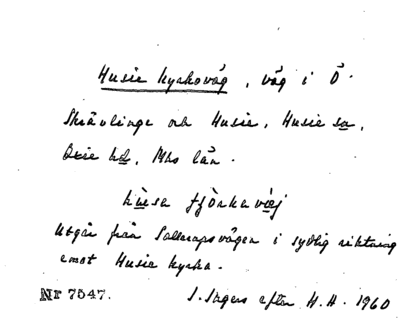 Husie kyrkoväg, väg i Ö.
Skrävlinge och Husie, Husie sn,
Oxie hd, Mhs län.
hùsa tjỏrkavä̀j
Utgår från Sallerupsvägen i sydlig riktning
emot Husie kyrka.
Nr 7547. I. Ingers efter H. H. 1960